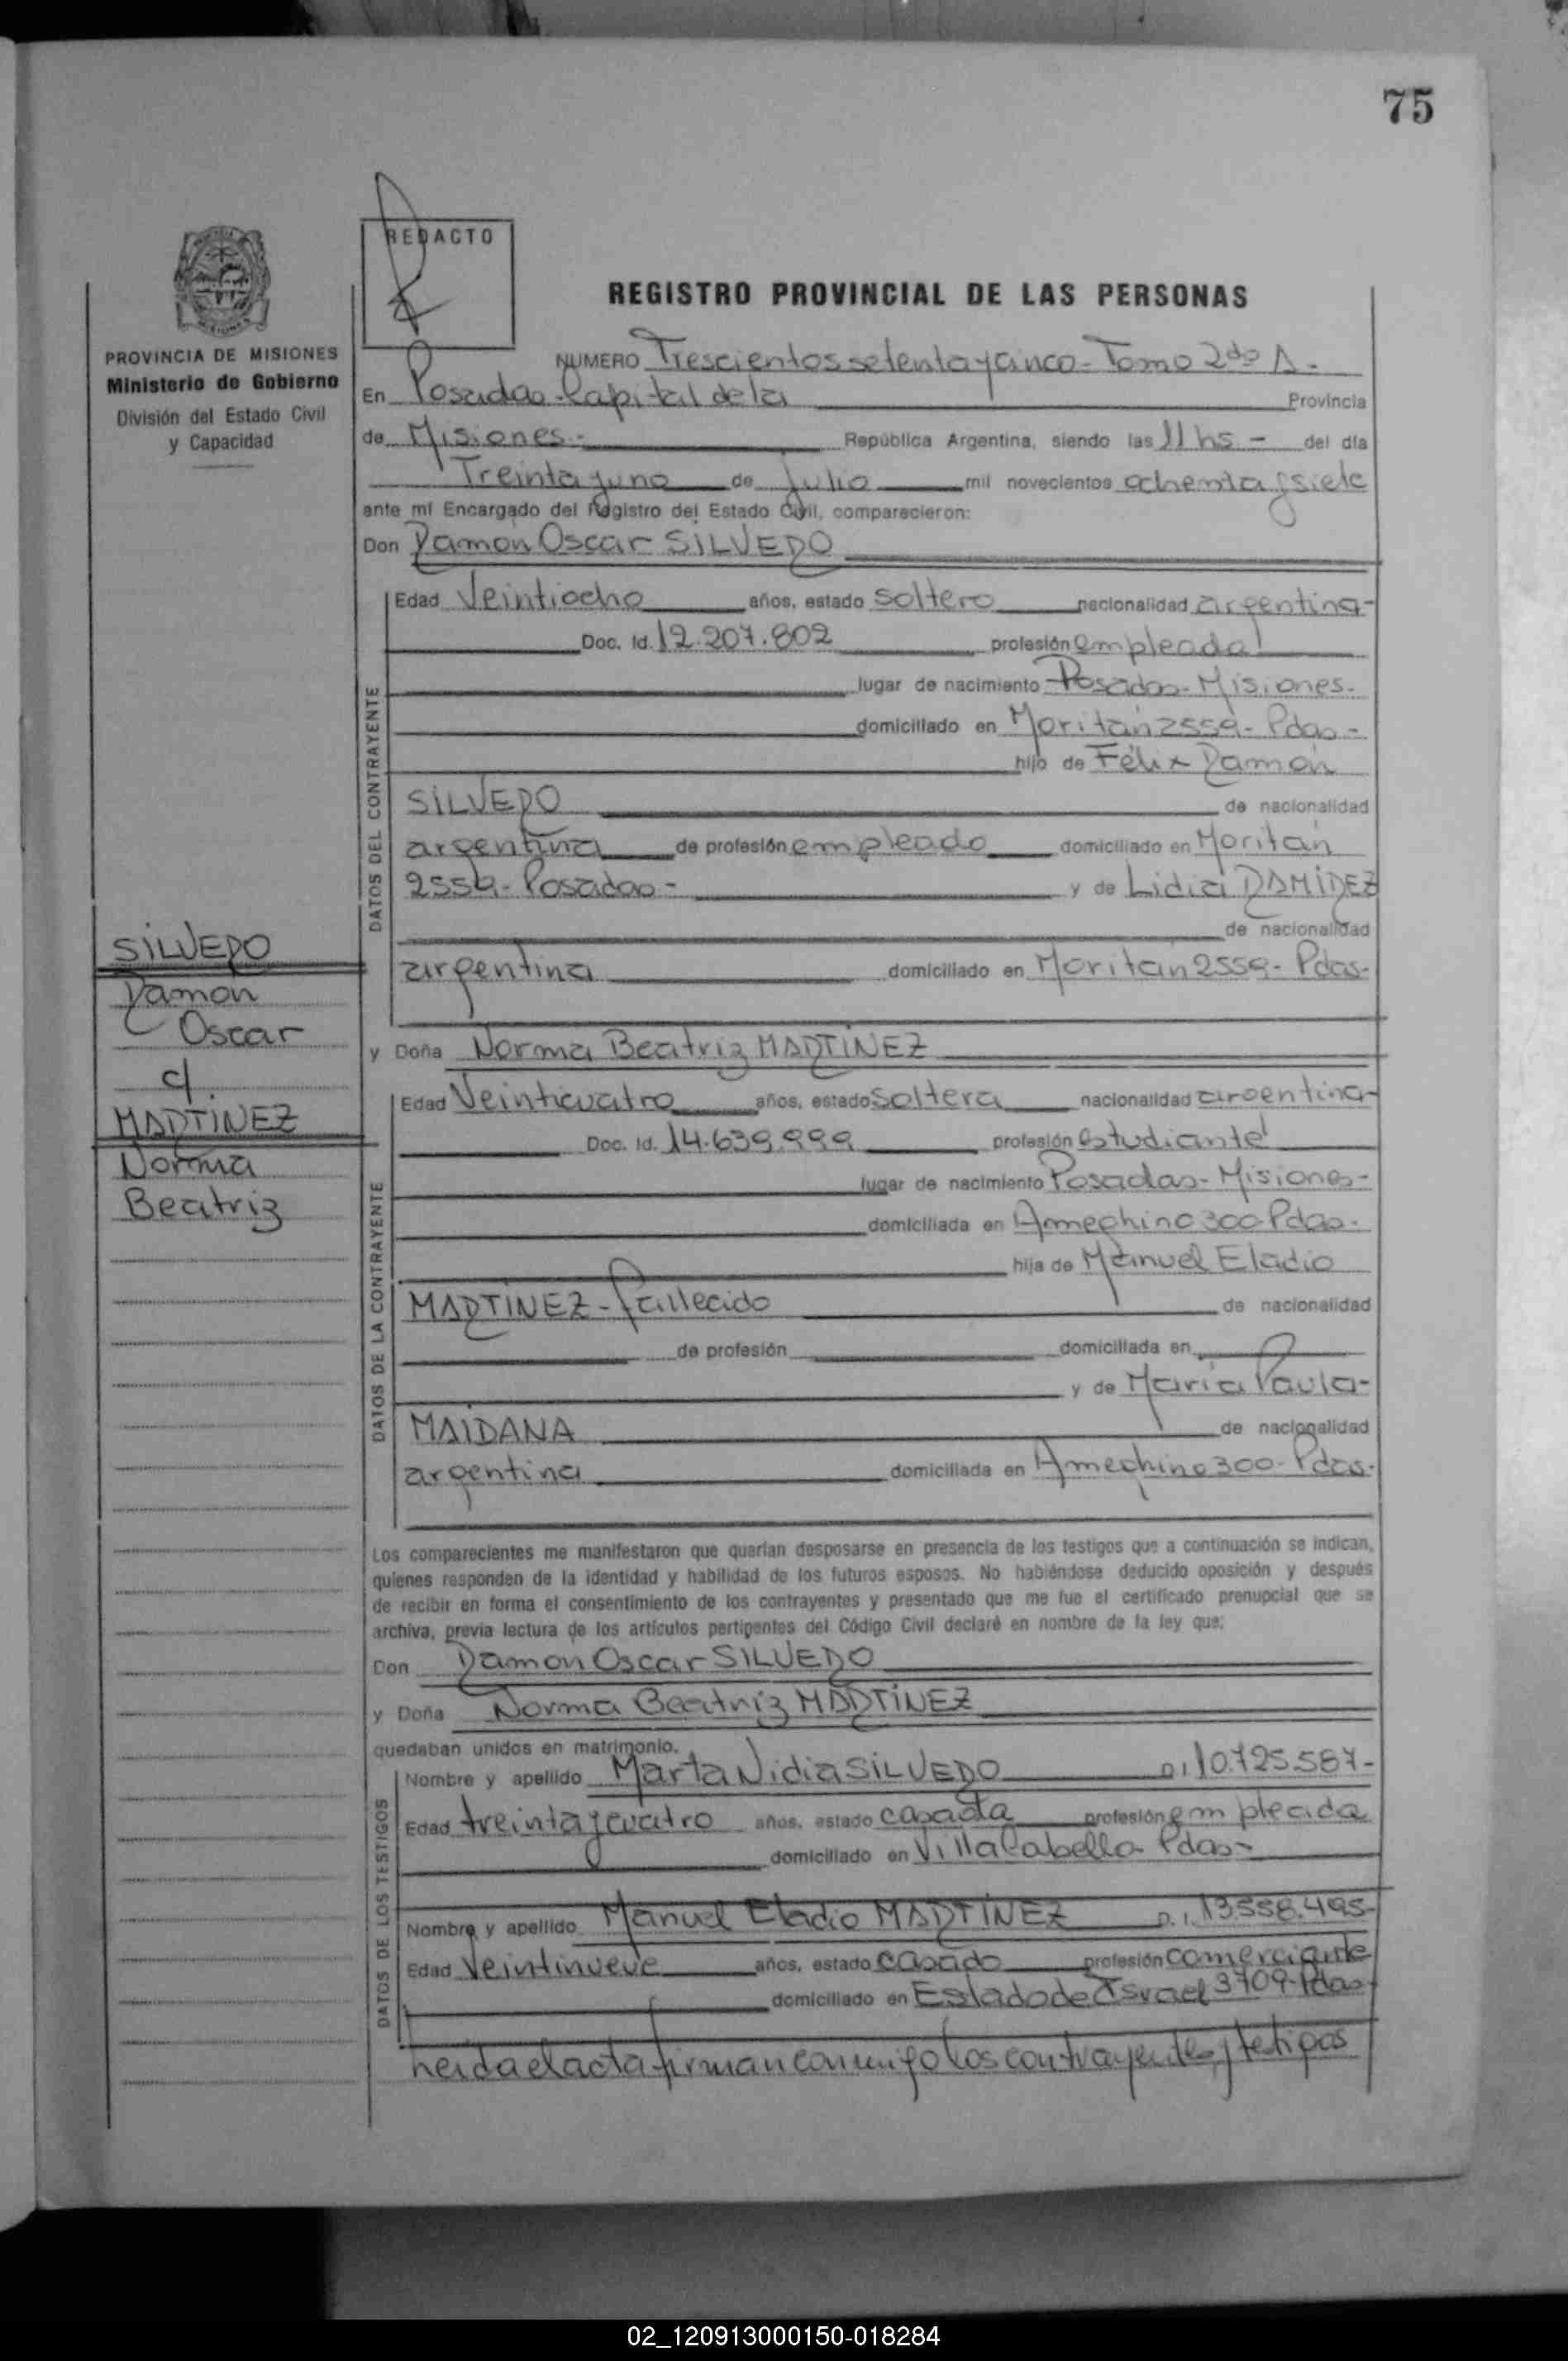 75
REDACTO
REGISTRO PROVINCIAL DE LAS PERSONAS
PROVINCIA DE MISIONES
Ministerio de Gobierno
División del Estado Civil
y Capacidad
NUMERO Trescientos setenta y cinco - Tomo 2do A -
En Posadas - Capital de la Provincia
de Misiones - República Argentina, siendo las 11 hs - del día
Treinta y uno de Julio mil novecientos ochenta y siete
ante mí Encargado del Registro del Estado Civil, comparecieron:
Don Ramon Oscar SILVERO
Edad Veintiocho años, estado soltero nacionalidad argentina -
Doc. Id. 12.207.802 profesión empleado
lugar de nacimiento Posadas - Misiones -
domiciliado en Moritán 2559 - Pdas -
hijo de Félix Ramón
SILVERO de nacionalidad
argentina de profesión empleado domiciliado en Moritán
2559 - Posadas - y de Lidia RAMIREZ
de nacionalidad
argentina domiciliado en Moritán 2559 - Pdas -
DATOS DEL CONTRAYENTE
SILVERO
Ramon
Oscar
c/
MARTINEZ
Norma
Beatriz
y Doña Norma Beatriz MARTINEZ
Edad Veinticuatro años, estado soltera nacionalidad argentina -
Doc. Id. 14.639.999 profesión estudiante
lugar de nacimiento Posadas - Misiones -
domiciliada en Ameghino 300 Pdas -
hija de Manuel Eladio
MARTINEZ - fallecido de nacionalidad
de profesión domiciliada en
y de María Paula -
MAIDANA de nacionalidad
argentina domiciliada en Ameghino 300 - Pdas -
DATOS DE LA CONTRAYENTE
Los comparecientes me manifestaron que querían desposarse en presencia de los testigos que a continuación se indican,
quienes responden de la identidad y habilidad de los futuros esposos. No habiéndose deducido oposición y después
de recibir en forma el consentimiento de los contrayentes y presentado que me fue el certificado prenupcial que se
archiva, previa lectura de los artículos pertinentes del Código Civil declaré en nombre de la ley que:
Don Ramon Oscar SILVERO
y Doña Norma Beatriz MARTINEZ
quedaban unidos en matrimonio.
Nombre y apellido Marta Nidia SILVERO D.I. 10.725.587 -
Edad treinta y cuatro años, estado casada profesión empleada
domiciliado en Villa Cabello - Pdas -
Nombre y apellido Manuel Eladio MARTINEZ D.I. 13.558.495 -
Edad Veintinueve años, estado casado profesión comerciante
domiciliado en Estado de Israel 3709 - Pdas -
DATOS DE LOS TESTIGOS
Leida el acta firman conmigo los contrayentes y testigos
02_120913000150-018284